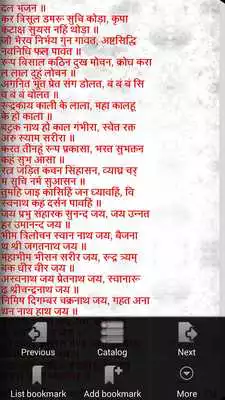 दल भजन ॥
कर त्रिसूल डमरू सुचि कोड़ा, कृपा
कटाक्ष सुयस नहिं थोड़ा ॥
जो भैरव निर्भय गुन गावत, अष्टसिद्धि
नवनिधि फल पावत ॥
रूप बिसाल कठिन दुख मोचन, क्रोध करा
ल लाल दुहुं लोचन ॥
अगनित भूत प्रेत संग डोलत, बं बं बं सि
व बं बं बोलत ॥
रुद्रकाय काली के लाला, महा कालहू
के हो काला ॥
बटुक नाथ हो काल गंभीरा, स्वेत रक्त
अरु स्याम सरीरा ॥
करत तीनहूं रूप प्रकासा, भरत सुभक्तन
कहं सुभ आसा ॥
रत्न जड़ित कंचन सिंहासन, व्याघ्र चर्
म सुचि नर्म सुआसन ॥
तुमहि जाइ कासिहिं जन ध्यावहिं, वि
स्वनाथ कहं दर्सन पावहिं ॥
जय प्रभु संहारक सुनन्द जय, जय उन्नत
हर उमानन्द जय ॥
भीम त्रिलोचन स्वान नाथ जय, बैजना
थ श्री जगतनाथ जय ॥
महाभीम भीसन सरीर जय, रूद्र त्र्यम्
बक धीर वीर जय ॥
अस्वनाथ जय प्रेतनाथ जय, स्वानारू
ढ़ श्रीचन्द्रनाथ जय ॥
निमिष दिगम्बर चक्रनाथ जय, गहत अना
थन नाथ हाथ जय ॥
Previous Catalog Next
List bookmark Add bookmark More